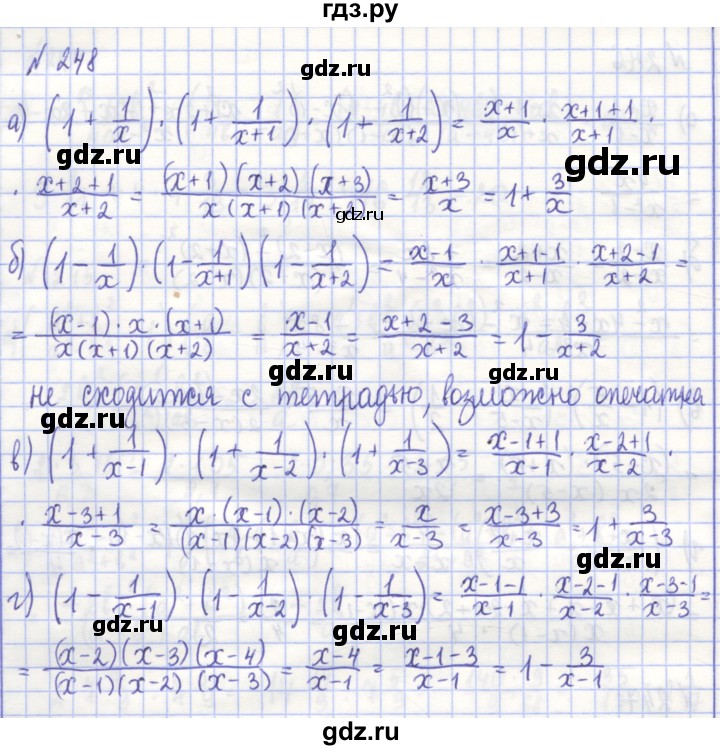 гдз.ру
№ 248
gdz.ru
а) (1 + 1/x) · (1 + 1/(x+1)) · (1 + 1/(x+2)) = (x+1)/x · (x+1+1)/(x+1) ·
gdz.ru
gdz.ru
· (x+2+1)/(x+2) = ((x+1)(x+2)(x+3))/(x(x+1)(x+2)) = (x+3)/x = 1 + 3/x
gdz.ru
gdz.ru
б) (1 - 1/x) · (1 - 1/(x+1)) (1 - 1/(x+2)) = (x-1)/x · (x+1-1)/(x+1) · (x+2-1)/(x+2) =
gdz.ru
= ((x-1) · x · (x+1))/(x(x+1)(x+2)) = (x-1)/(x+2) = (x+2-3)/(x+2) = 1 - 3/(x+2)
gdz.ru
gdz.ru
не сходится с тетрадью, возможно опечатка
gdz.ru
в) (1 + 1/(x-1)) · (1 + 1/(x-2)) · (1 + 1/(x-3)) = (x-1+1)/(x-1) · (x-2+1)/(x-2) ·
gdz.ru
· (x-3+1)/(x-3) = (x · (x-1) · (x-2))/((x-1)(x-2)(x-3)) = x/(x-3) = (x-3+3)/(x-3) = 1 + 3/(x-3)
gdz.ru
gdz.ru
г) (1 - 1/(x-1)) · (1 - 1/(x-2)) · (1 - 1/(x-3)) = (x-1-1)/(x-1) · (x-2-1)/(x-2) · (x-3-1)/(x-3) =
gdz.ru
gdz.ru
= ((x-2)(x-3)(x-4))/((x-1)(x-2)(x-3)) = (x-4)/(x-1) = (x-1-3)/(x-1) = 1 - 3/(x-1)
gdz.ru
gdz.ru
gdz.ru